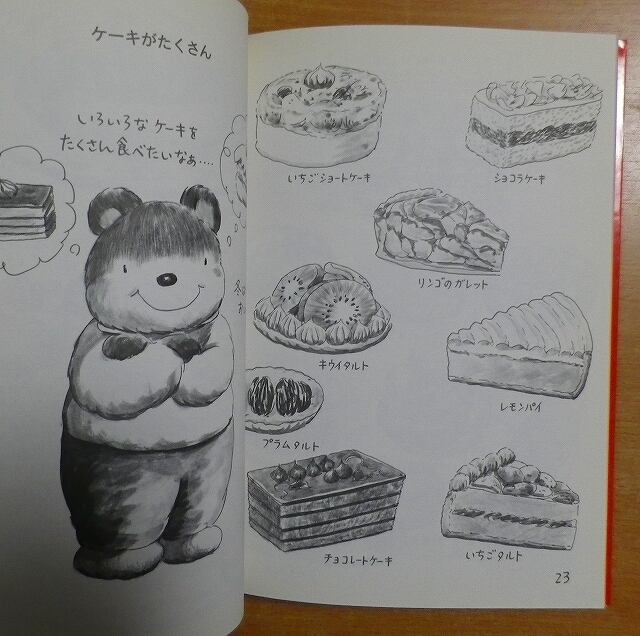 ケーキがたくさん
いろいろな ケーキを
たくさん食べたいなぁ....
いちごショートケーキ
ショコラケーキ
リンゴのガレット
キウイタルト
レモンパイ
プラムタルト
チョコレートケーキ
いちごタルト
23